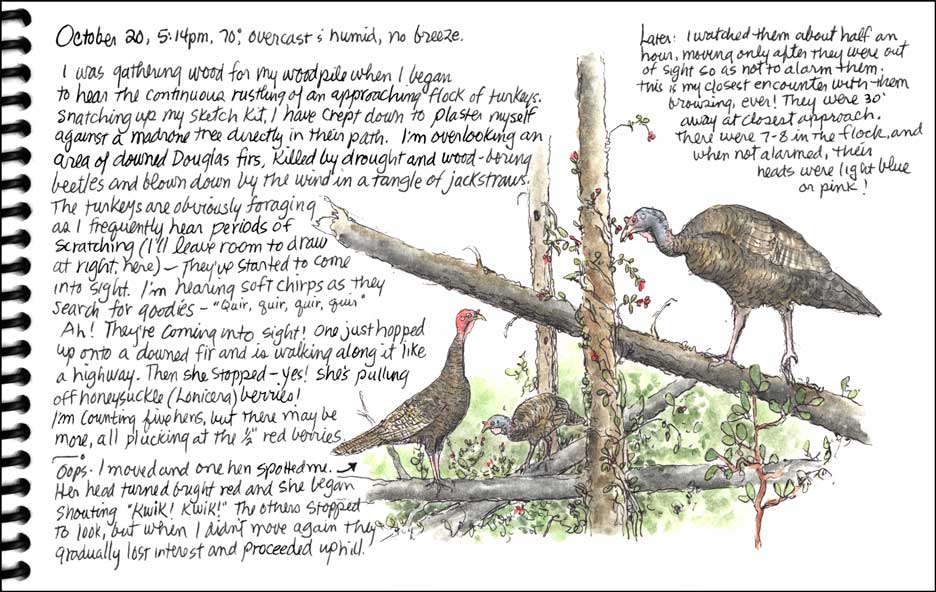 October 20, 5:14pm, 70°, overcast & humid, no breeze.
I was gathering wood for my woodpile when I began
to hear the continuous rustling of an approaching flock of turkeys.
Snatching up my sketch kit, I have crept down to plaster myself
against a madrone tree directly in their path. I'm overlooking an
area of downed Douglas firs, killed by drought and wood-boring
beetles and blown down by the wind in a tangle of jackstraws.
The turkeys are obviously foraging
as I frequently hear periods of
scratching (I'll leave room to draw
at right, here) – They've started to come
into sight. I'm hearing soft chirps as they
search for goodies – "Quir, quir, quir, quir"
Ah! They're coming into sight! One just hopped
up onto a downed fir and is walking along it like
a highway. Then she stopped – yes! she's pulling
off honeysuckle (Lonicera) berries!
I'm counting five hens, but there may be
more, all plucking at the ½" red berries.
Oops. I moved and one hen spotted me. →
Her head turned bright red and she began
shouting "Kwik! Kwik!" The others stopped
to look, but when I didn't move again they
gradually lost interest and proceeded uphill.
Later: I watched them about half an
hour, moving only after they were out
of sight so as not to alarm them.
This is my closest encounter with them
browsing, ever! They were 30'
away at closest approach.
There were 7-8 in the flock, and
when not alarmed, their
heads were light blue
or pink!